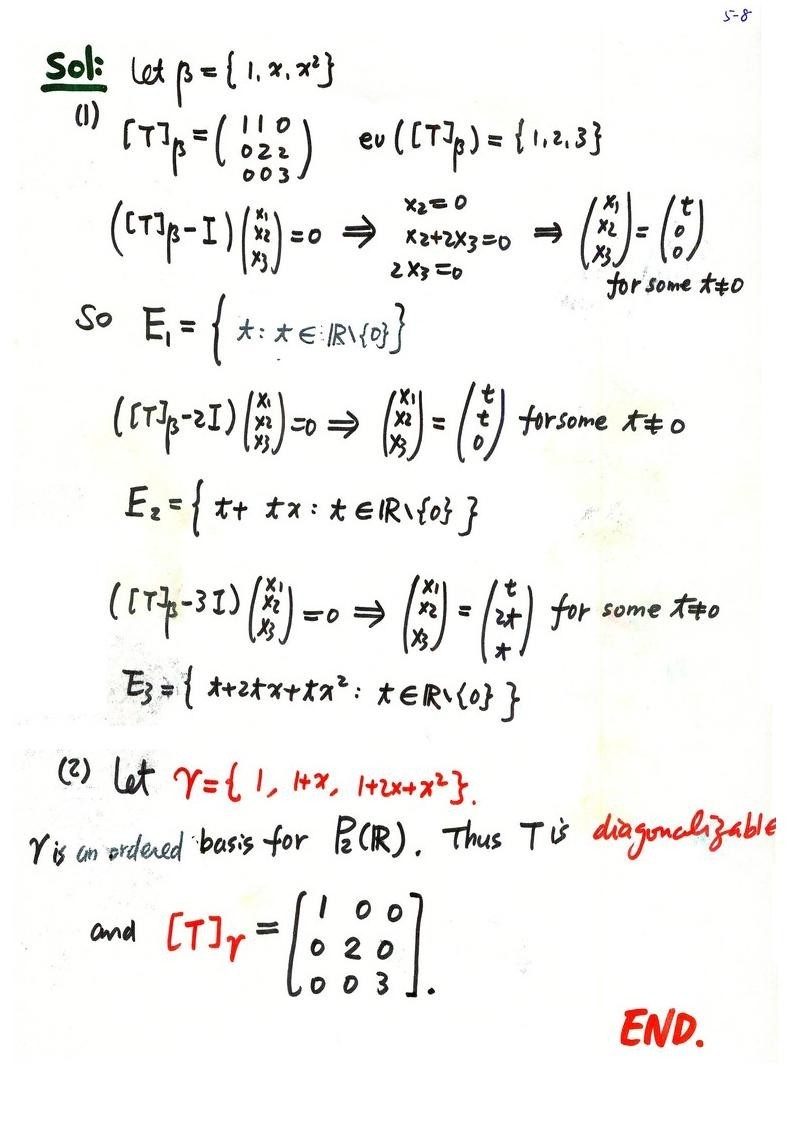 5-8
Sol: Let β = { 1, x, x² }
(1) [T]β = ( 1 1 0 / 0 2 2 / 0 0 3 ) ev([T]β) = {1, 2, 3}
([T]β - I) (x1 / x2 / x3) = 0 ⇒ x2 = 0 / x2+2x3 = 0 / 2x3 = 0 ⇒ (x1 / x2 / x3) = (t / 0 / 0)
for some t≠0
So E1 = { t : t ∈ ℝ\{0} }
([T]β - 2I) (x1 / x2 / x3) = 0 ⇒ (x1 / x2 / x3) = (t / t / 0) for some t≠0
E2 = { t + tx : t ∈ ℝ\{0} }
([T]β - 3I) (x1 / x2 / x3) = 0 ⇒ (x1 / x2 / x3) = (t / 2t / t) for some t≠0
E3 = { t+2tx+tx² : t ∈ ℝ\{0} }
(2) Let γ = { 1, 1+x, 1+2x+x² }.
γ is an ordered basis for P2(ℝ). Thus T is diagonalizable
and [T]γ = [ 1 0 0 / 0 2 0 / 0 0 3 ].
END.